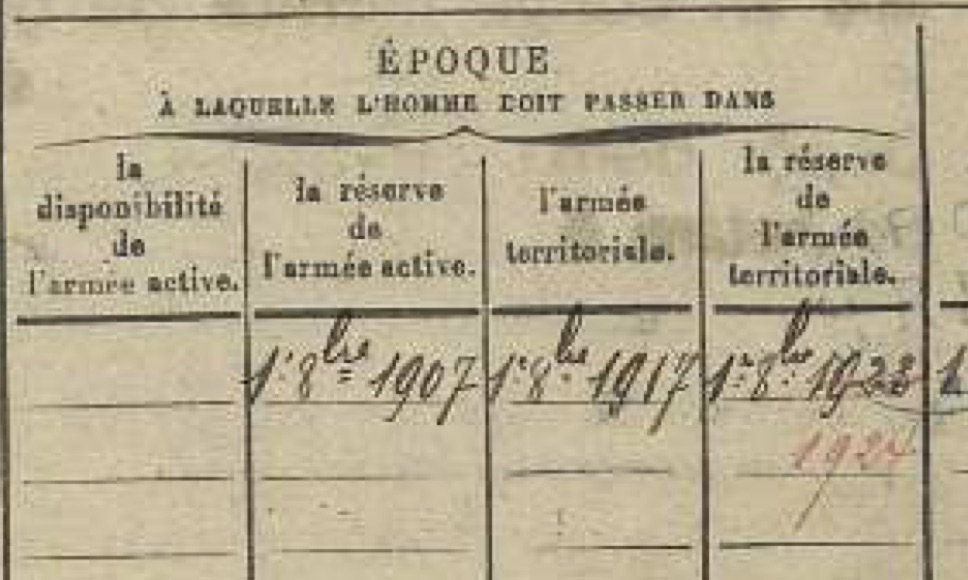 ÉPOQUE
À LAQUELLE L'HOMME DOIT PASSER DANS
la
disponibilité
de
l'armée active.
la réserve
de
l'armée active.
l'armée
territoriale.
la réserve
de
l'armée
territoriale.
1er 8bre 1907
1er 8bre 1917
1er 8bre 1923